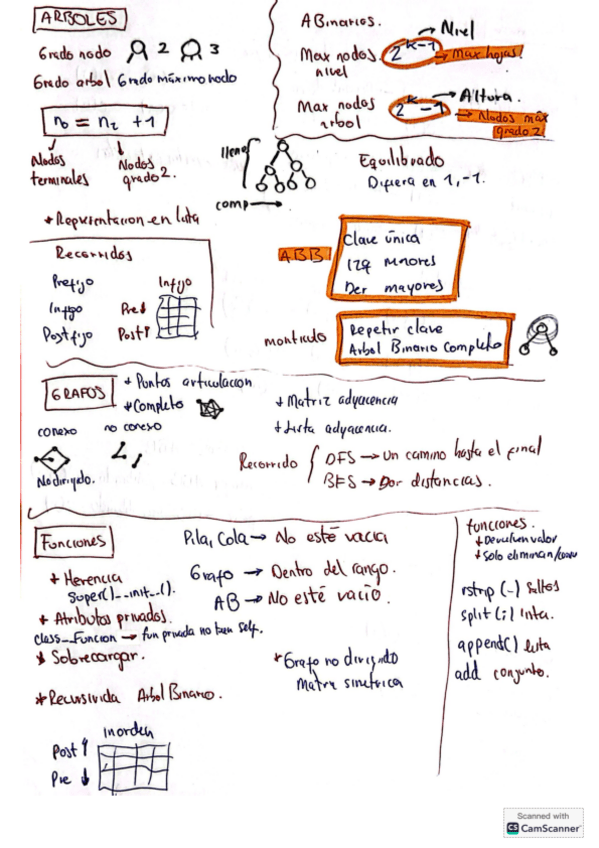 ARBOLES
Grado nodo 2 3
Grado arbol Grado máximo nodo
n0 = n2 + 1
Nodos terminales
Nodos grado 2.
* Representacion en lista
Recorridos
Prefijo
Infijo
Postfijo
Infijo
Pre ↓
Post ↑
A Binarios.
Max nodos nivel 2^k-1 → Nivel
→ Max hojas!
Max nodos arbol 2^k - 1 → Altura.
→ Nodos máx grado 2
lleno
comp →
Equilibrado
Difiera en 1, -1.
ABB
Clave única
izq menores
Der mayores
monticulo
Repetir clave
Arbol Binario Completo
GRAFOS
* Puntos articulacion
* Completo
conexo
no conexo
No dirigido.
* Matriz adyacencia
* Lista adyacencia.
Recorrido { DFS → Un camino hasta el final
BFS → Por distancias.
Funciones
* Herencia
super().__init__().
* Atributos privados.
class__Funcion → fun privada no tien self.
* Sobrecargar.
* Recursivida Arbol Binario.
inorden
Post ↑
Pre ↓
Pila, Cola → No esté vacia
Grafo → Dentro del rango.
AB → No esté vacio.
* Grafo no dirigido
Matriz simetrica
funciones.
* Devuelven valor
* Solo eliminan/
rstrip (-) saltos
split (;)
append() lista
add conjunto.
Scanned with
CS CamScanner